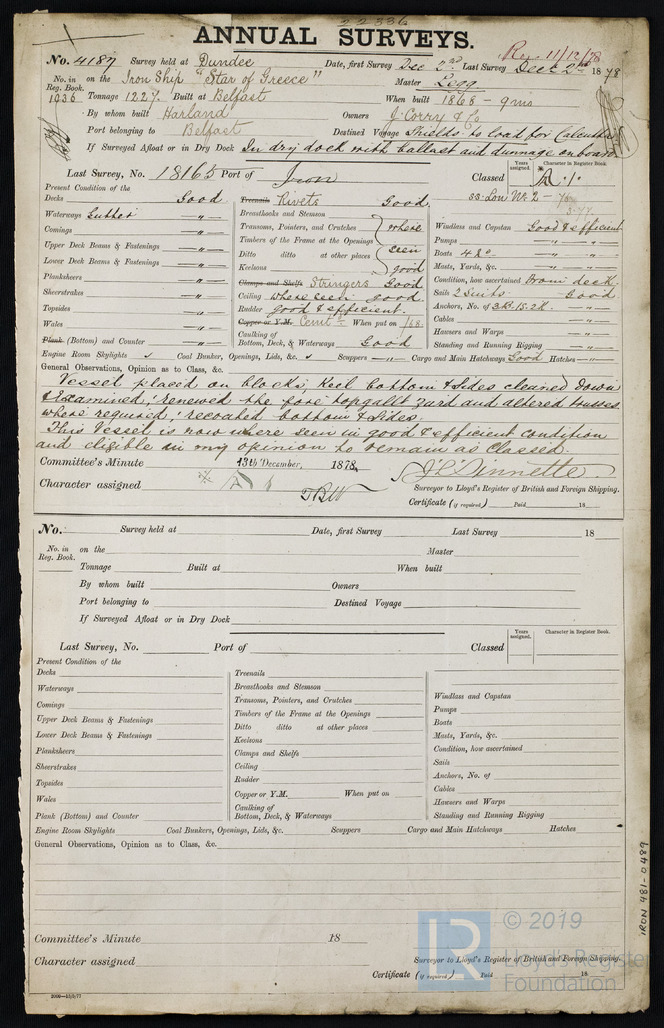 22336
ANNUAL SURVEYS.
Rec 11/12/78
No. 4187 Survey held at Dundee Date, first Survey Dec 2nd Last Survey Dec 2nd 1878
No. in Reg. Book. 1036 on the Iron Ship "Star of Greece" Master Legg
Tonnage 1227 Built at Belfast When built 1868 - 9 mo
By whom built Harland Owners J. Corry & Co
Port belonging to Belfast Destined Voyage Shields to load for Calcutta
If Surveyed Afloat or in Dry Dock In dry dock with ballast and dunnage onboard
Last Survey, No. 18165 Port of Iron Classed
Years assigned. Character in Register Book.
Present Condition of the
Decks Good
Waterways Gutter "
Comings "
Upper Deck Beams & Fastenings "
Lower Deck Beams & Fastenings "
Planksheers "
Sheerstrakes "
Topsides "
Wales "
Plank (Bottom) and Counter "
Treenails Rivets Good
Breasthooks and Stemson
Transoms, Pointers, and Crutches where
Timbers of the Frame at the Openings
Ditto ditto at other places seen
Keelsons good
Clamps and Shelfs Stringers Good
Ceiling where seen good
Rudder good & efficient.
Copper or Y.M. Cemt When put on /68.
Caulking of
Bottom, Deck, & Waterways Good
33 Lon No. 2 -
Windlass and Capstan Good & efficient
Pumps "
Boats 4 "
Masts, Yards, &c. "
Condition, how ascertained From deck.
Sails 2 Suits Good
Anchors, No. of 3B. 1S. 2K. "
Cables "
Hawsers and Warps "
Standing and Running Rigging "
Engine Room Skylights Coal Bunkers, Openings, Lids, &c. Scuppers " Cargo and Main Hatchways Good Hatches "
General Observations, Opinion as to Class, &c.
Vessel placed on blocks, Keel bottom & sides cleaned down
& examined, renewed the fore topgallt yard and altered trusses
where required, recoated bottom & sides
This Vessel is now where seen in good & efficient condition
and eligible in my opinion to remain as Classed.
Committee's Minute 13th December, 1878,
Character assigned A 1
Surveyor to Lloyd's Register of British and Foreign Shipping.
Certificate (if required) Paid 18
No. Survey held at Date, first Survey Last Survey 18
No. in Reg. Book. on the Master
Tonnage Built at When built
By whom built Owners
Port belonging to Destined Voyage
If Surveyed Afloat or in Dry Dock
Last Survey, No. Port of Classed
Years assigned. Character in Register Book.
Present Condition of the
Decks
Waterways
Comings
Upper Deck Beams & Fastenings
Lower Deck Beams & Fastenings
Planksheers
Sheerstrakes
Topsides
Wales
Plank (Bottom) and Counter
Treenails
Breasthooks and Stemson
Transoms, Pointers, and Crutches
Timbers of the Frame at the Openings
Ditto ditto at other places
Keelsons
Clamps and Shelfs
Ceiling
Rudder
Copper or Y.M. When put on
Caulking of
Bottom, Deck, & Waterways
Windlass and Capstan
Pumps
Boats
Masts, Yards, &c.
Condition, how ascertained
Sails
Anchors, No. of
Cables
Hawsers and Warps
Standing and Running Rigging
Engine Room Skylights Coal Bunkers, Openings, Lids, &c. Scuppers Cargo and Main Hatchways Hatches
General Observations, Opinion as to Class, &c.
Committee's Minute 18
Character assigned
Surveyor to Lloyd's Register of British and Foreign Shipping.
Certificate (if required) Paid 18
2000—12/3/77
IRON 481-0489
LR
© 2019
Lloyd's Register
Foundation